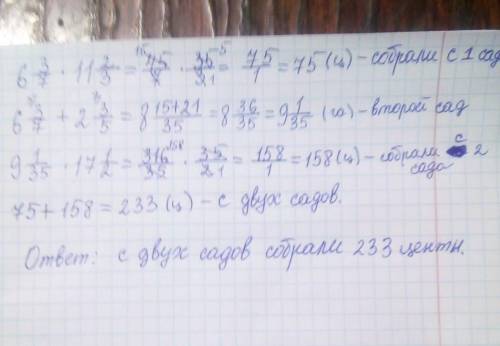 6 3/7 · 11 2/3 = 75/7 · 35/21 = 75/1 = 75 (ц) – собрали с 1 сад
6 3/7 + 2 3/5 = 8 15+21/35 = 8 36/35 = 9 1/35 (га) – второй сад
9 1/35 · 17 1/2 = 316/35 · 35/21 = 158/1 = 158 (ц) – собрали с 2 сада
75 + 158 = 233 (ц) – с двух садов.
Ответ: с двух садов собрали 233 центн.